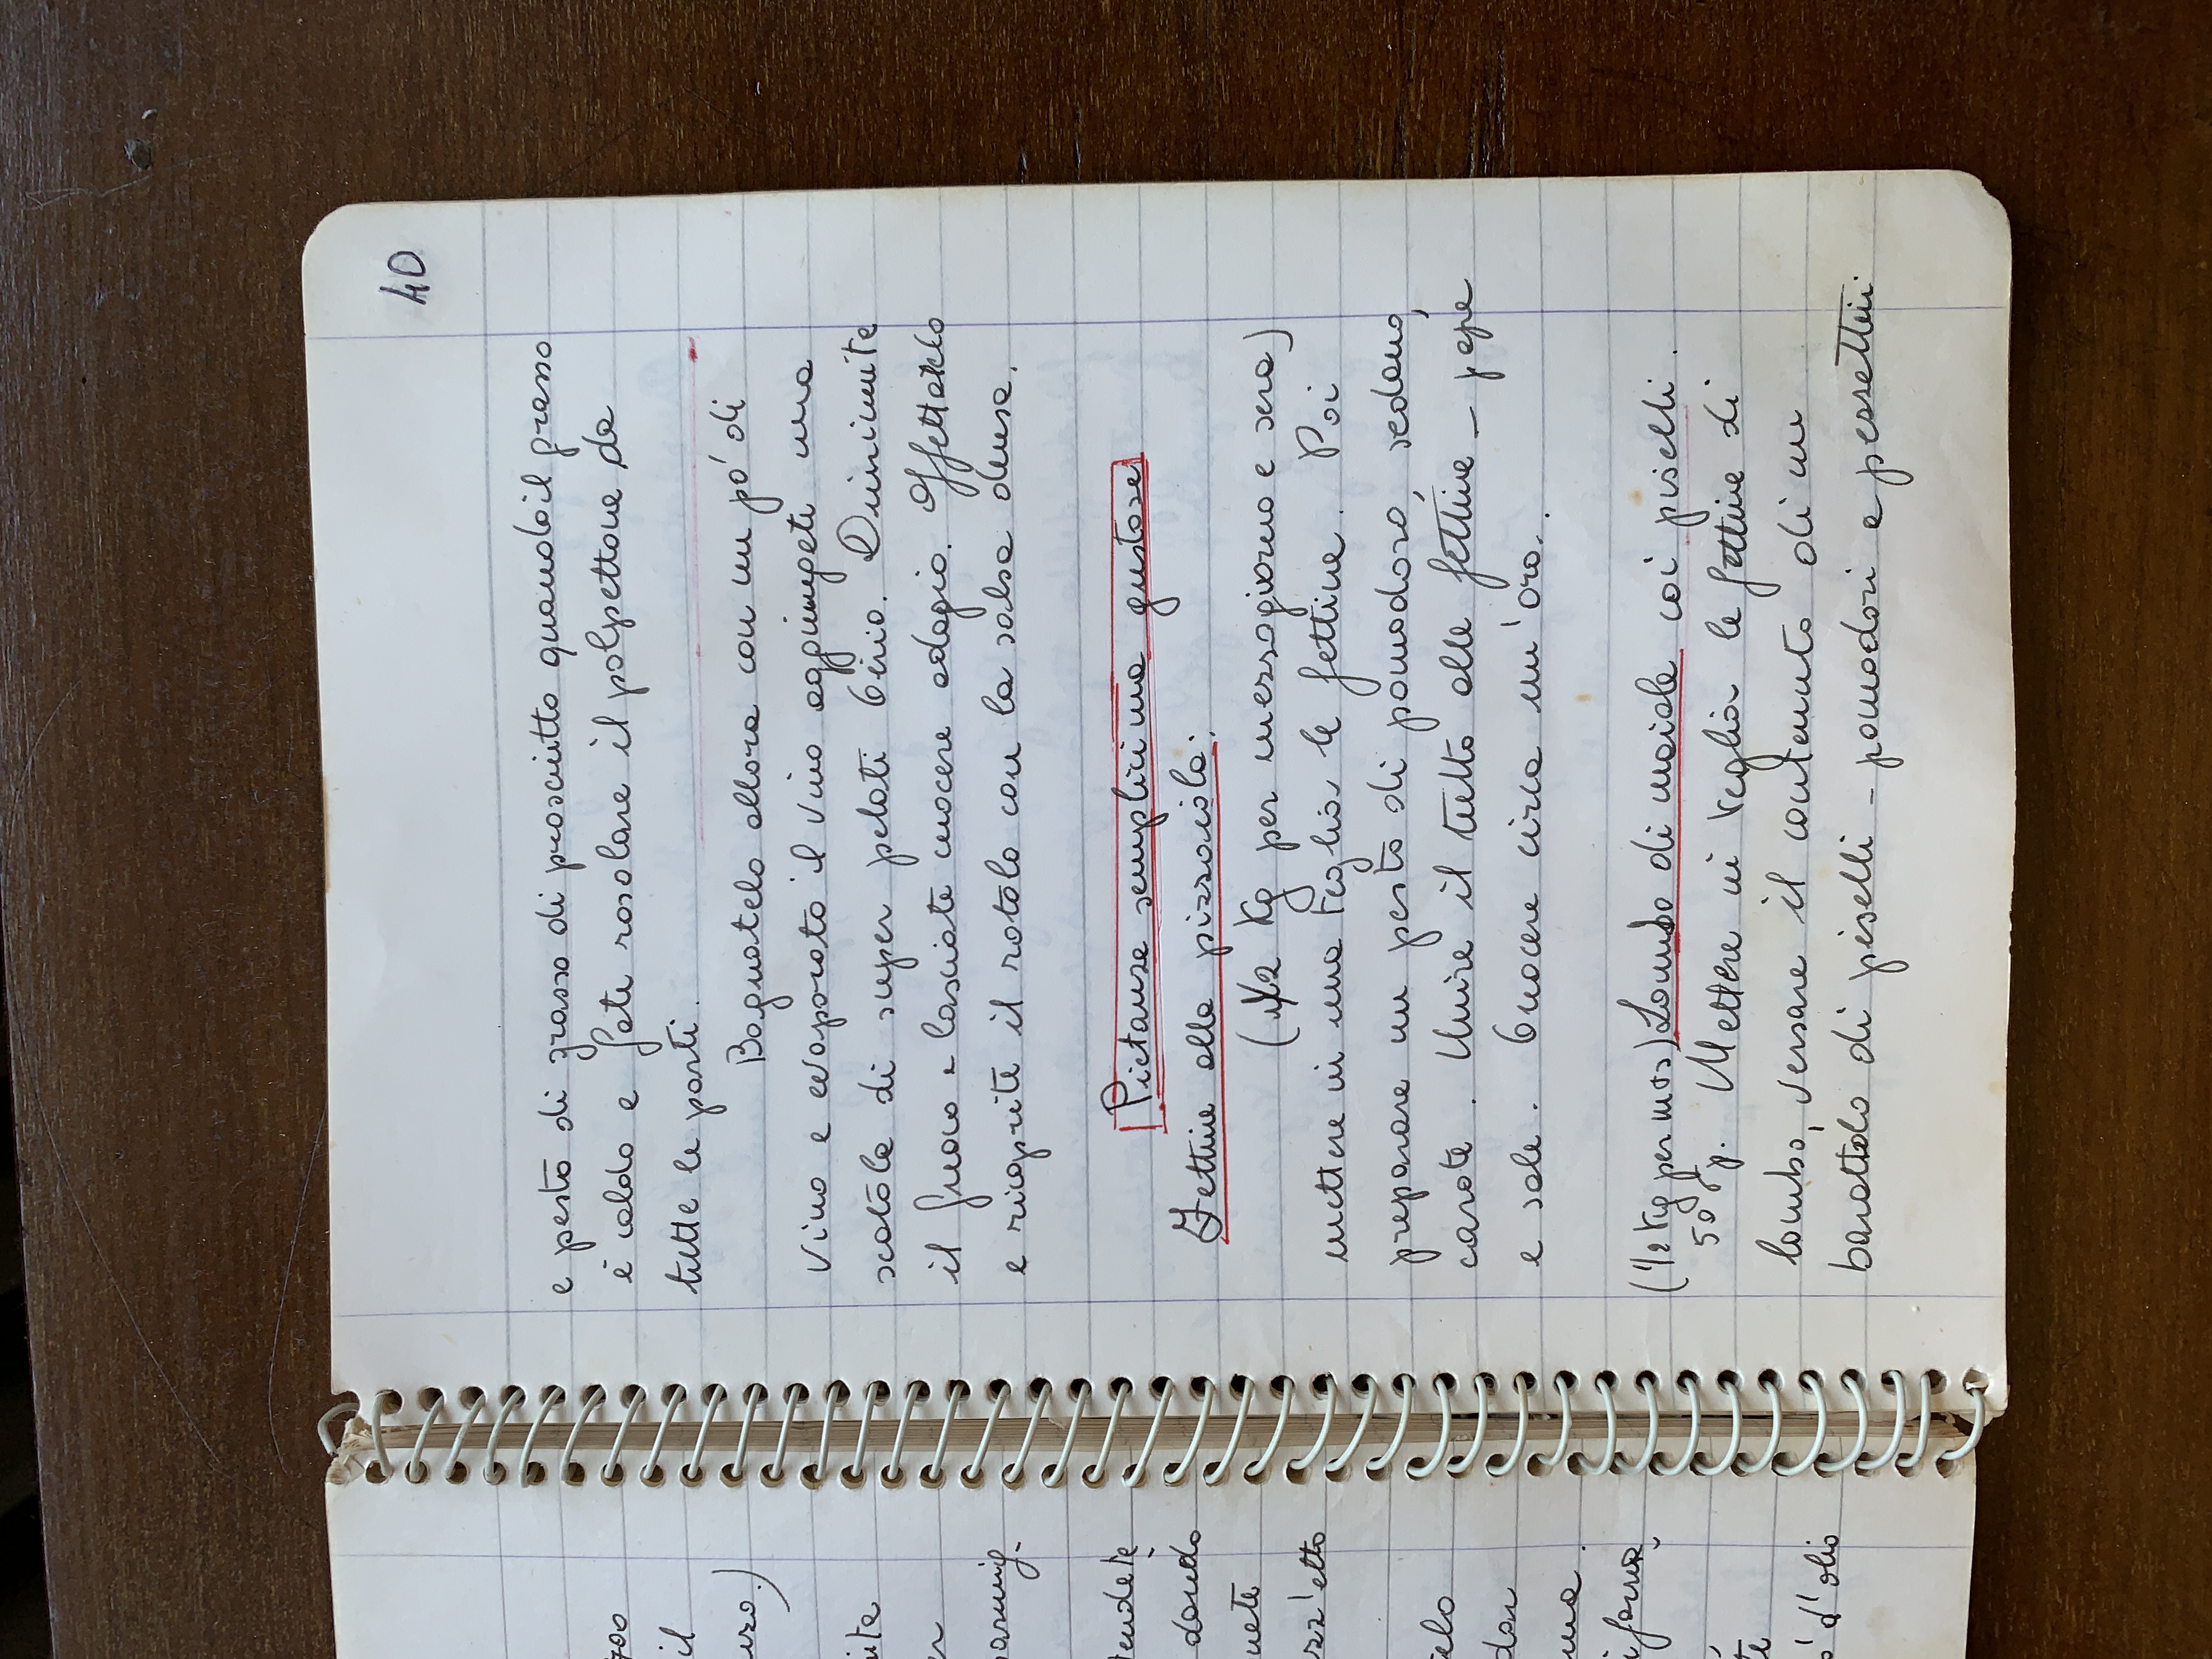 40
e pesto di grasso di prosciutto quando il grasso
è caldo e fate rosolare il polpettone da
tutte le parti.
Bagnatelo allora con un pò' di
vino e evaporato il vino aggiungete una
scatola di super pelati Cirio. Diminuite
il fuoco e lasciate cuocere adagio. Affettatelo
e ricoprite il rotolo con la salsa densa.
Pietanze semplicima gustose
Fettine alla pizzaiola:
(1/2 Kg per mezzogiorno e sera)
mettere in una teglia le fettine. Poi
preparare un pesto di pomodoro, sedano,
carote. Unire il tutto alle fettine - pepe
e sale. Cuocere circa un'ora.
(1/2 Kg per m+s) Lombo di maiale coi piselli.
Mettere in teglia le fettine di
lombo, versare il contenuto di un
barattolo di piselli - pomodori a pezzettini
700
il
nite
er
tendete
dando
nete
zz'etto
telo
don
ma.
te
ò' d'olio